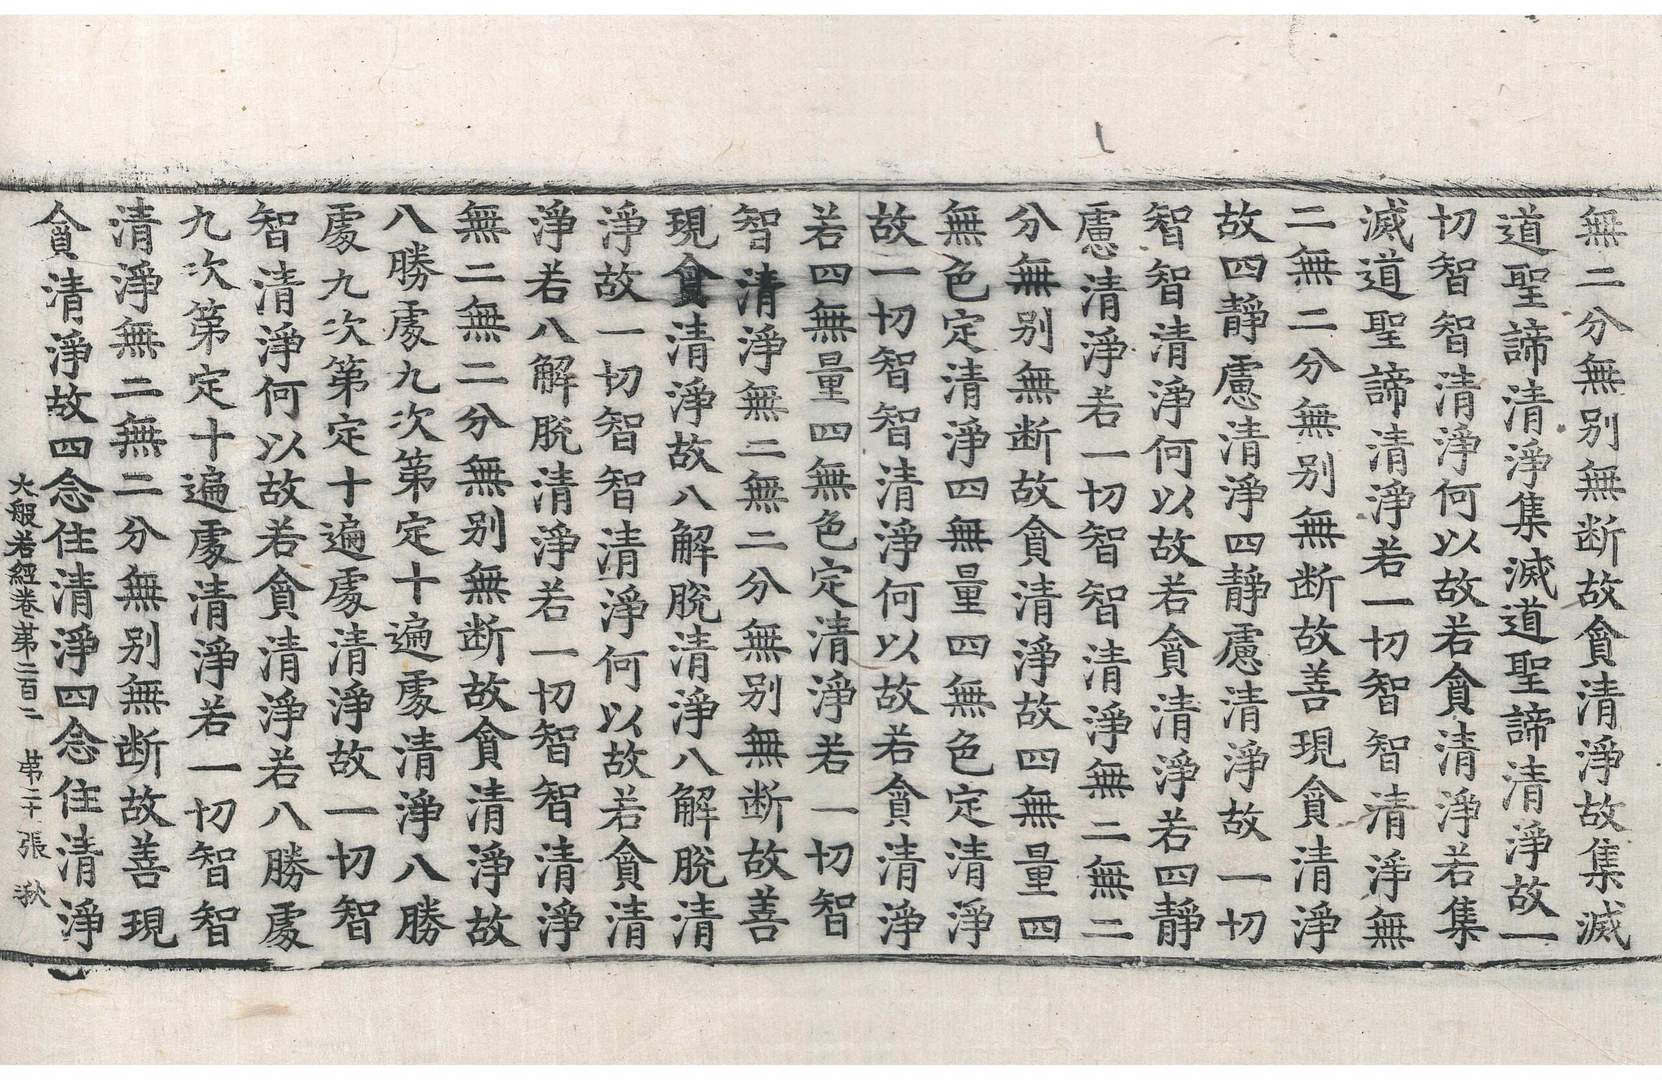 無二分無別無断故貪清淨故集滅
道聖諦清淨集滅道聖諦清淨故一
切智智清淨何以故若貪清淨若集
滅道聖諦清淨若一切智智清淨無
二無二分無別無断故善現貪清淨
故四靜慮清淨四靜慮清淨故一切
智智清淨何以故若貪清淨若四靜
慮清淨若一切智智清淨無二無二
分無別無断故貪清淨故四無量四
無色定清淨四無量四無色定清淨
故一切智智清淨何以故若貪清淨
若四無量四無色定清淨若一切智
智清淨無二無二分無別無断故善
現貪清淨故八解脫清淨八解脫清
淨故一切智智清淨何以故若貪清
淨若八解脫清淨若一切智智清淨
無二無二分無別無断故貪清淨故
八勝處九次第定十遍處清淨八勝
處九次第定十遍處清淨故一切智
智清淨何以故若貪清淨若八勝處
九次第定十遍處清淨若一切智智
清淨無二無二分無別無断故善現
貪清淨故四念住清淨四念住清淨
大般若經卷第二百二 第二十張